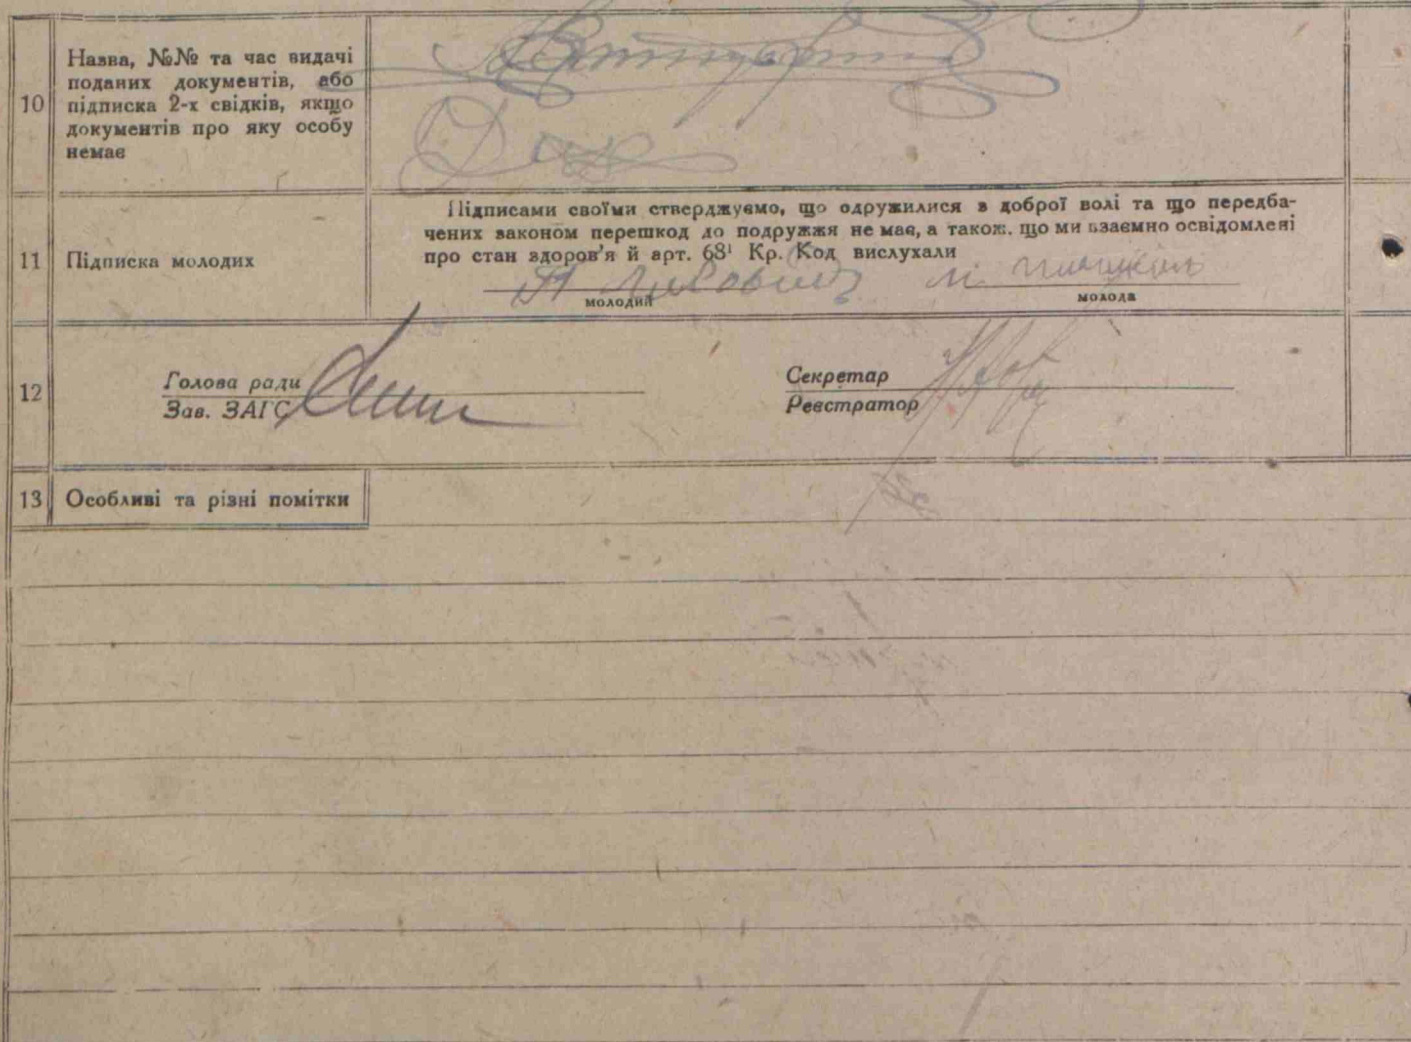 10
Назва, №№ та час видачі
поданих документів, або
підписка 2-х свідків, якщо
документів про яку особу
немає
11
Підписка молодих
Підписами своїми стверджуємо, що одружилися з доброї волі та що передба-
чених законом перешкод до подружжя не має, а також, що ми взаємно освідомлені
про стан здоров'я й арт. 68¹ Кр. Код вислухали
молодий
молода
12
Голова ради
Зав. ЗАГС
Секретар
Реєстратор
13
Особливі та різні помітки